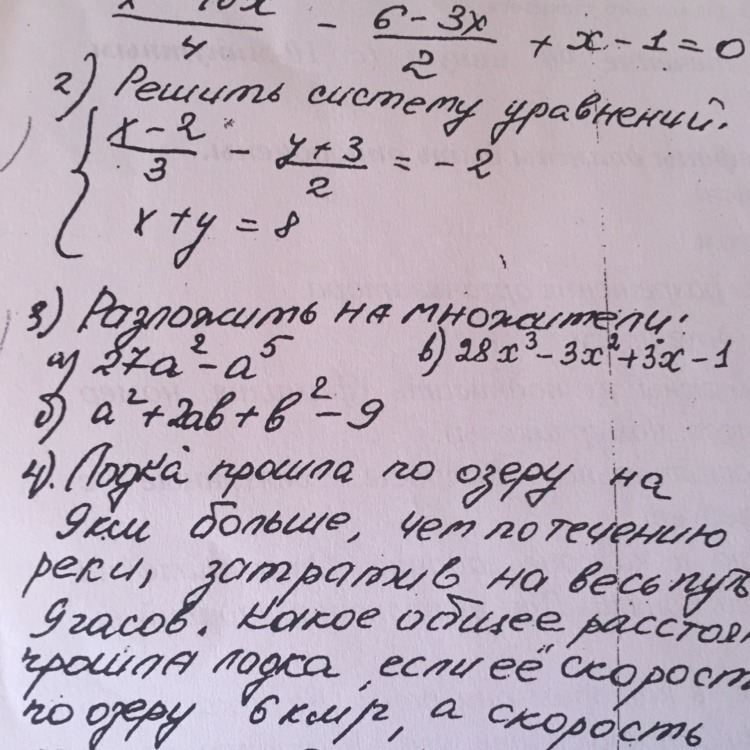 4 - (6 - 3x)/2 + x - 1 = 0
2) Решить систему уравнений.
{ (x - 2)/3 - (y + 3)/2 = -2
x + y = 8
3) Разложить на множители:
а) 27a² - a⁵ в) 28x³ - 3x² + 3x - 1
б) a² + 2ab + b² - 9
4). Лодка прошла по озеру на
9 км больше, чем по течению
реки, затратив на весь путь
9 часов. Какое общее расстоя
прошла лодка, если её скорост
по озеру 6 км/ч, а скорость